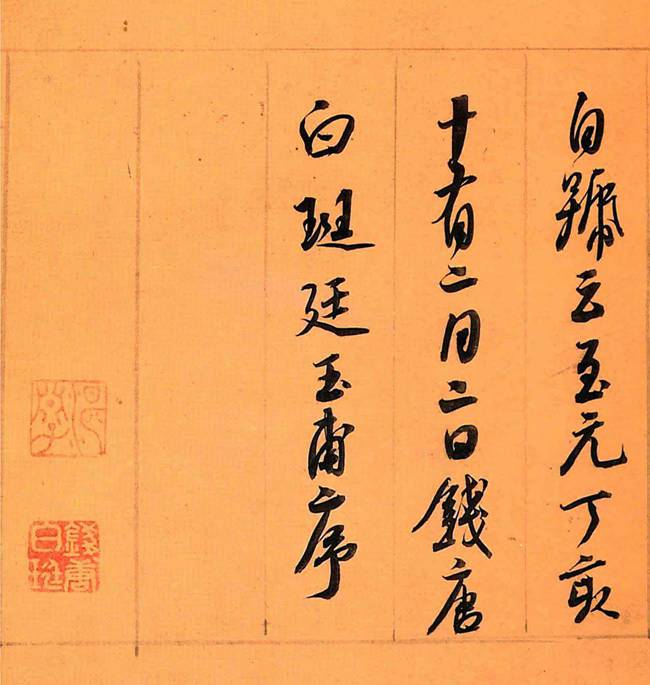 自號云至元丁亥
十有二月二日錢唐
白珽廷玉甫序
錢唐
白珽